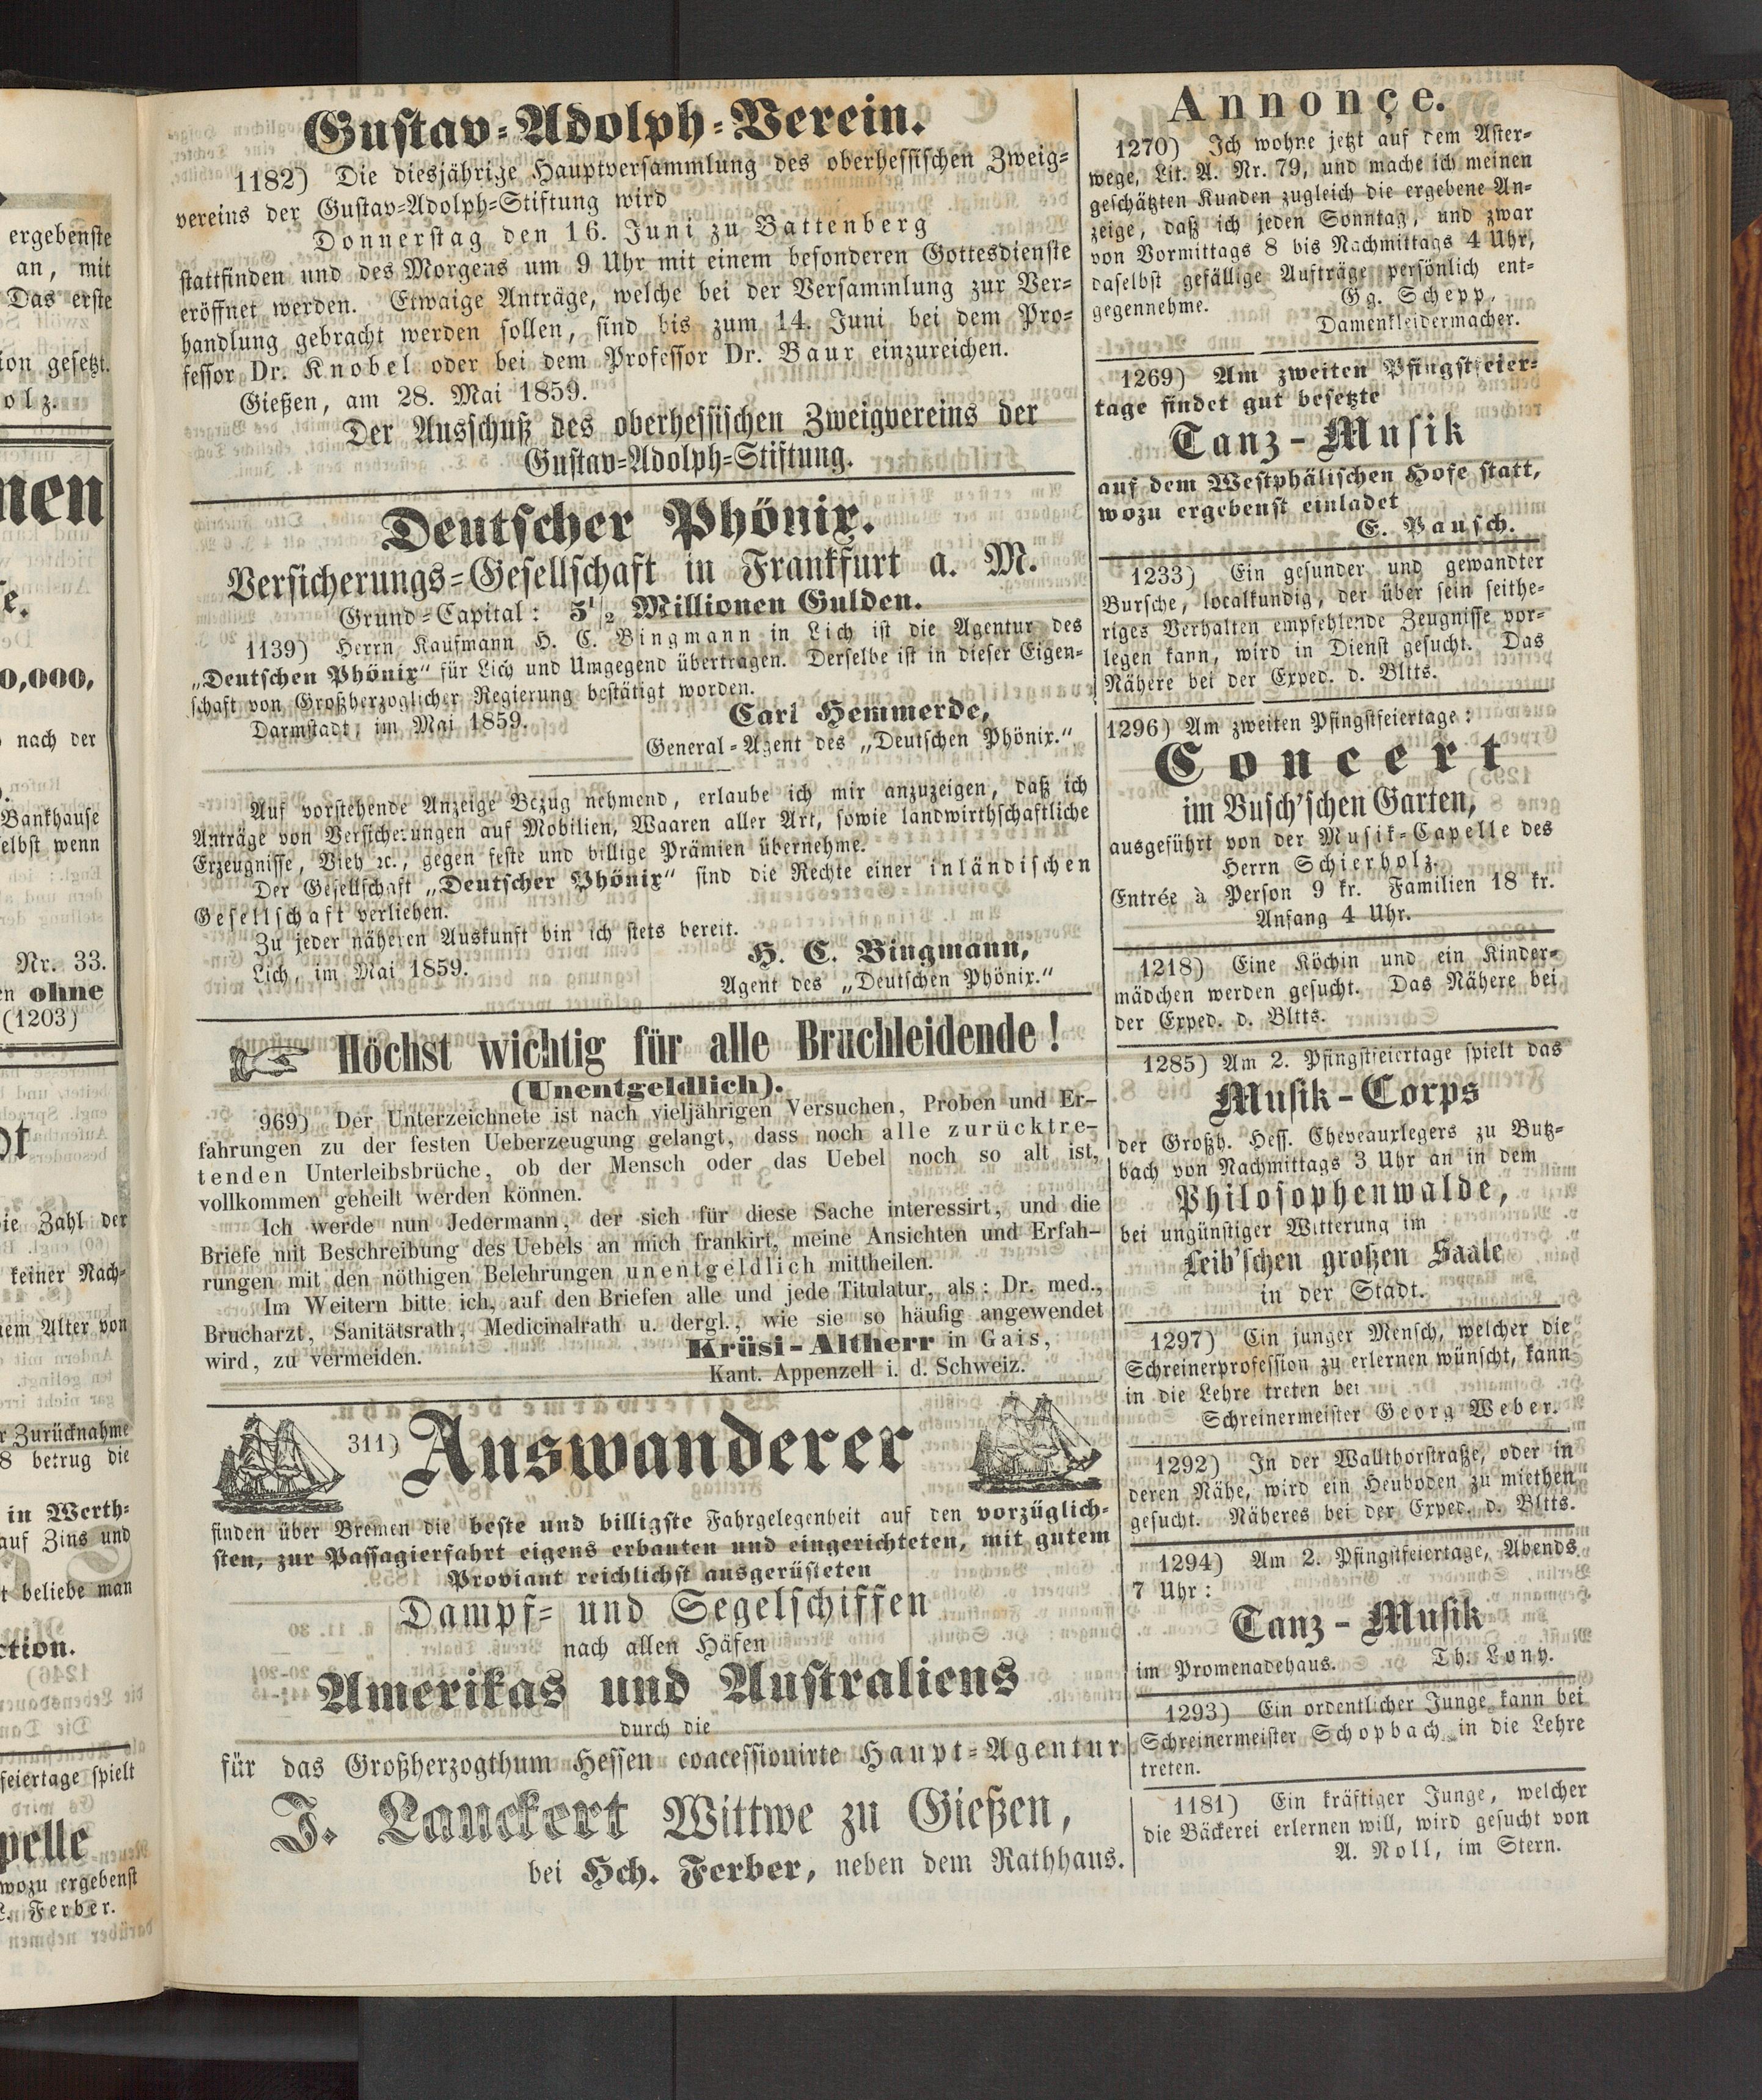 Gustav-Adolph-Verein.
1182) Die diesjährige Hauptversammlung des oberhessischen Zweig-
vereins der Gustav-Adolph-Stiftung wird
Donnerstag den 16. Juni zu Battenberg
stattfinden und des Morgens um 9 Uhr mit einem besonderen Gottesdienste
eröffnet werden. Etwaige Anträge, welche bei der Versammlung zur Ver-
handlung gebracht werden sollen, sind bis zum 14. Juni bei dem Pro-
fessor Dr. Knobel oder bei dem Professor Dr. Baur einzureichen.
Gießen, am 28. Mai 1859.
Der Ausschuß des oberhessischen Zweigvereins der
Gustav-Adolph-Stiftung.
Deutscher Phönix.
Versicherungs-Gesellschaft in Frankfurt a. M.
Grund-Capital: 5 1/2 Millionen Gulden.
1139) Herrn Kaufmann H. C. Bingmann in Lich ist die Agentur des
„Deutschen Phönix“ für Lich und Umgegend übertragen. Derselbe ist in dieser Eigen-
schaft von Großherzoglicher Regierung bestätigt worden.
Darmstadt, im Mai 1859.
Carl Hemmerde,
General-Agent des „Deutschen Phönix.“
Auf vorstehende Anzeige Bezug nehmend, erlaube ich mir anzuzeigen, daß ich
Anträge von Versicherungen auf Mobilien, Waaren aller Art, sowie landwirthschaftliche
Erzeugnisse, Vieh ꝛc., gegen feste und billige Prämien übernehme.
Der Gesellschaft „Deutscher Phönix“ sind die Rechte einer inländischen
Gesellschaft verliehen.
Zu jeder näheren Auskunft bin ich stets bereit.
Lich, im Mai 1859.
H. C. Bingmann,
Agent des „Deutschen Phönix.“
Höchst wichtig für alle Bruchleidende!
(Unentgeldlich).
969) Der Unterzeichnete ist nach vieljährigen Versuchen, Proben und Er-
fahrungen zu der festen Ueberzeugung gelangt, dass noch alle zurücktre-
tenden Unterleibsbrüche, ob der Mensch oder das Uebel noch so alt ist,
vollkommen geheilt werden können.
Ich werde nun Jedermann, der sich für diese Sache interessirt, und die
Briefe mit Beschreibung des Uebels an mich frankirt, meine Ansichten und Erfah-
rungen mit den nöthigen Belehrungen unentgeldlich mittheilen.
Im Weitern bitte ich, auf den Briefen alle und jede Titulatur, als: Dr. med.,
Brucharzt, Sanitätsrath, Medicinalrath u. dergl., wie sie so häufig angewendet
wird, zu vermeiden.
Krüsi-Altherr in Gais,
Kant. Appenzell i. d. Schweiz.
311) Auswanderer
finden über Bremen die beste und billigste Fahrgelegenheit auf den vorzüglich-
sten, zur Passagierfahrt eigens erbauten und eingerichteten, mit gutem
Proviant reichlichst ausgerüsteten
Dampf- und Segelschiffen
nach allen Häfen
Amerikas und Australiens
durch die
für das Großherzogthum Hessen concessionirte Haupt-Agentur
J. Lauckert Wittwe zu Gießen,
bei Hch. Ferber, neben dem Rathhaus.
Annonçe.
1270) Ich wohne jetzt auf dem Aster-
wege, Lit. A. Nr. 79, und mache ich meinen
geschätzten Kunden zugleich die ergebene An-
zeige, daß ich jeden Sonntag, und zwar
von Vormittags 8 bis Nachmittags 4 Uhr,
daselbst gefällige Aufträge persönlich ent-
gegennehme.
Gg. Schepp,
Damenkleidermacher.
1269) Am zweiten Pfingstfeier-
tage findet gut besetzte
Tanz-Musik
auf dem Westphälischen Hofe statt,
wozu ergebenst einladet
E. Pausch.
1233) Ein gesunder und gewandter
Bursche, localkundig, der über sein seithe-
riges Verhalten empfehlende Zeugnisse vor-
legen kann, wird in Dienst gesucht. Das
Nähere bei der Exped. d. Bltts.
1296) Am zweiten Pfingstfeiertage:
Concert
im Busch'schen Garten,
ausgeführt von der Musik-Capelle des
Herrn Schierholz.
Entrée à Person 9 kr. Familien 18 kr.
Anfang 4 Uhr.
1218) Eine Köchin und ein Kinder-
mädchen werden gesucht. Das Nähere bei
der Exped. d. Bltts.
1285) Am 2. Pfingstfeiertage spielt das
Musik-Corps
der Großh. Hess. Cheveauxlegers zu Butz-
bach von Nachmittags 3 Uhr an in dem
Philosophenwalde,
bei ungünstiger Witterung im
Leib'schen großen Saale
in der Stadt.
1297) Ein junger Mensch, welcher die
Schreinerprofession zu erlernen wünscht, kann
in die Lehre treten bei
Schreinermeister Georg Weber.
1292) In der Wallthorstraße, oder in
deren Nähe, wird ein Heuboden zu miethen
gesucht. Näheres bei der Exped. d. Bltts.
1294) Am 2. Pfingstfeiertage, Abends
7 Uhr:
Tanz-Musik
im Promenadehaus. Th. Lony.
1293) Ein ordentlicher Junge kann bei
Schreinermeister Schopbach in die Lehre
treten.
1181) Ein kräftiger Junge, welcher
die Bäckerei erlernen will, wird gesucht von
A. Noll, im Stern.
ergebenste
an, mit
Das erste
gesetzt.
0,000,
nach der
Bankhause
elbst wenn
Nr. 33.
ohne
(1203)
ie Zahl der
keiner Nach-
Alter von
Zurücknahme
8 betrug die
in Werth-
auf Zins und
beliebe man
ction.
feiertage spielt
pelle
wozu ergebenst
Ferber.